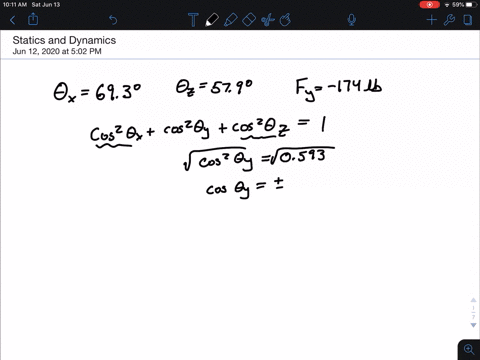 10:11 AM Sat Jun 13
59%
T
Statics and Dynamics
Jun 12, 2020 at 5:02 PM
θx = 69.3° θz = 57.9° Fy = -174 lb
cos²θx + cos²θy + cos²θz = 1
√cos²θy = √0.593
cos θy = ±